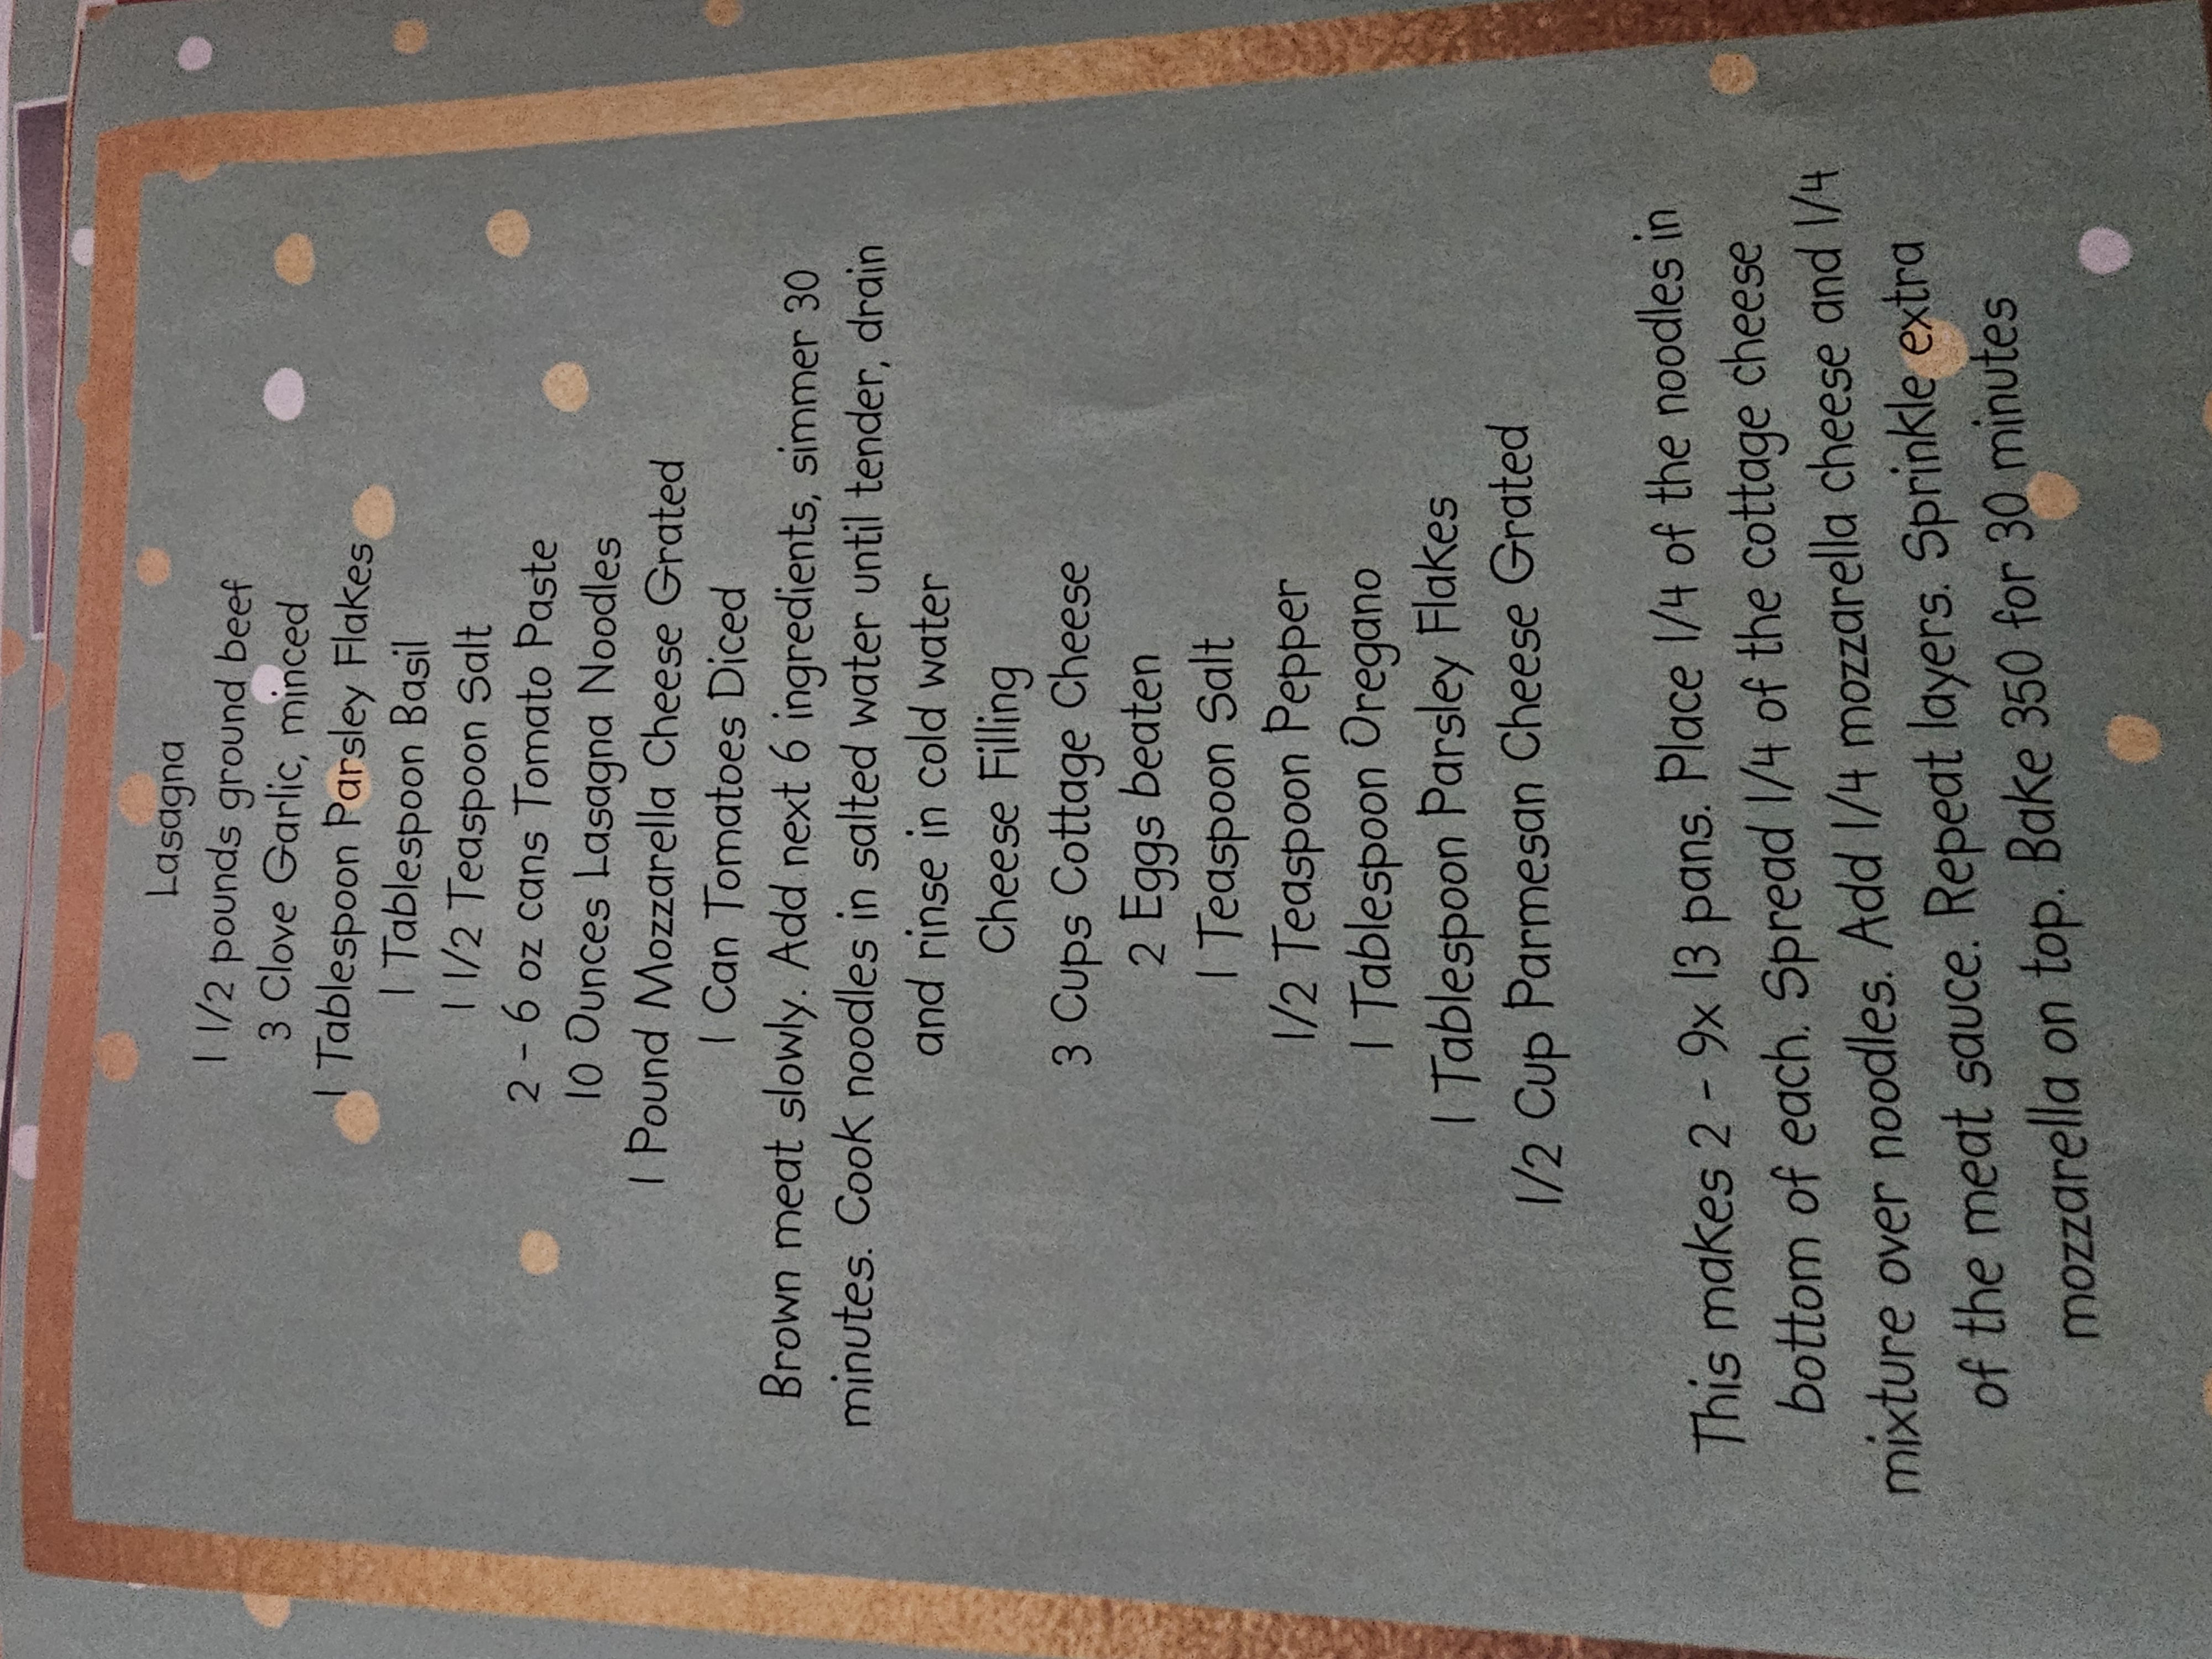 Lasagna
1 1/2 pounds ground beef
3 Clove Garlic, minced
1 Tablespoon Parsley Flakes
1 Tablespoon Basil
1 1/2 Teaspoon Salt
2 - 6 oz cans Tomato Paste
10 Ounces Lasagna Noodles
1 Pound Mozzarella Cheese Grated
1 Can Tomatoes Diced
Brown meat slowly. Add next 6 ingredients, simmer 30
minutes. Cook noodles in salted water until tender, drain
and rinse in cold water
Cheese Filling
3 Cups Cottage Cheese
2 Eggs beaten
1 Teaspoon Salt
1/2 Teaspoon Pepper
1 Tablespoon Oregano
1 Tablespoon Parsley Flakes
1/2 Cup Parmesan Cheese Grated
This makes 2 - 9x 13 pans. Place 1/4 of the noodles in
bottom of each. Spread 1/4 of the cottage cheese
mixture over noodles. Add 1/4 mozzarella cheese and 1/4
of the meat sauce. Repeat layers. Sprinkle extra
mozzarella on top. Bake 350 for 30 minutes